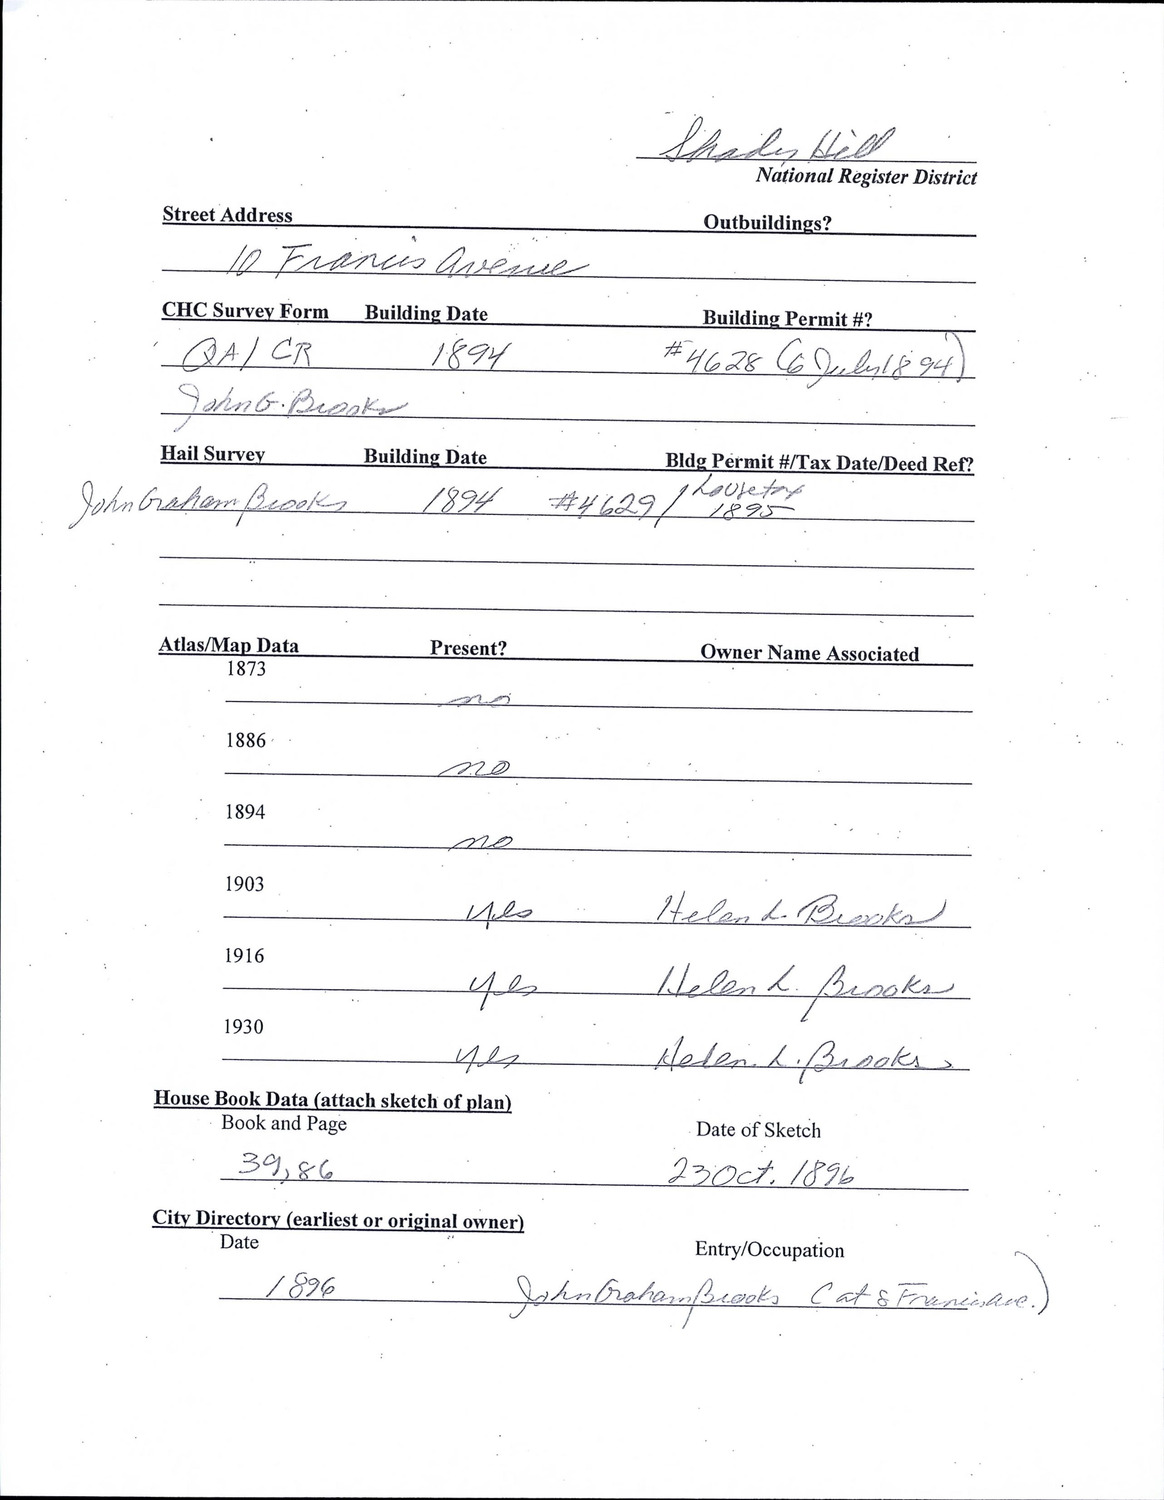 Shady Hill
National Register District
Street Address Outbuildings?
10 Francis Avenue
CHC Survey Form Building Date Building Permit #?
QA/CR 1894 #4628 (6 July 1894)
John G. Brooks
Hail Survey Building Date Bldg Permit #/Tax Date/Deed Ref?
John Graham Brooks 1894 #4629 / house tax
1895
Atlas/Map Data Present? Owner Name Associated
1873
no
1886
no
1894
no
1903
yes Helen L. Brooks
1916
yes Helen L. Brooks
1930
yes Helen. L. Brooks
House Book Data (attach sketch of plan)
Book and Page Date of Sketch
39,86 23 Oct. 1896
City Directory (earliest or original owner)
Date Entry/Occupation
1896 John Graham Brooks (at 8 Francis Ave.)